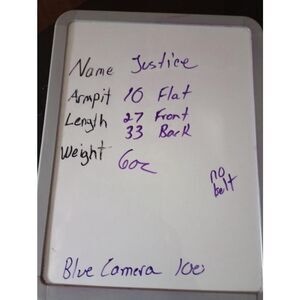 Name Justice
Armpit 10 Flat
Length 27 Front
33 Back
Weight 6oz
no
belt
Blue Camera 100